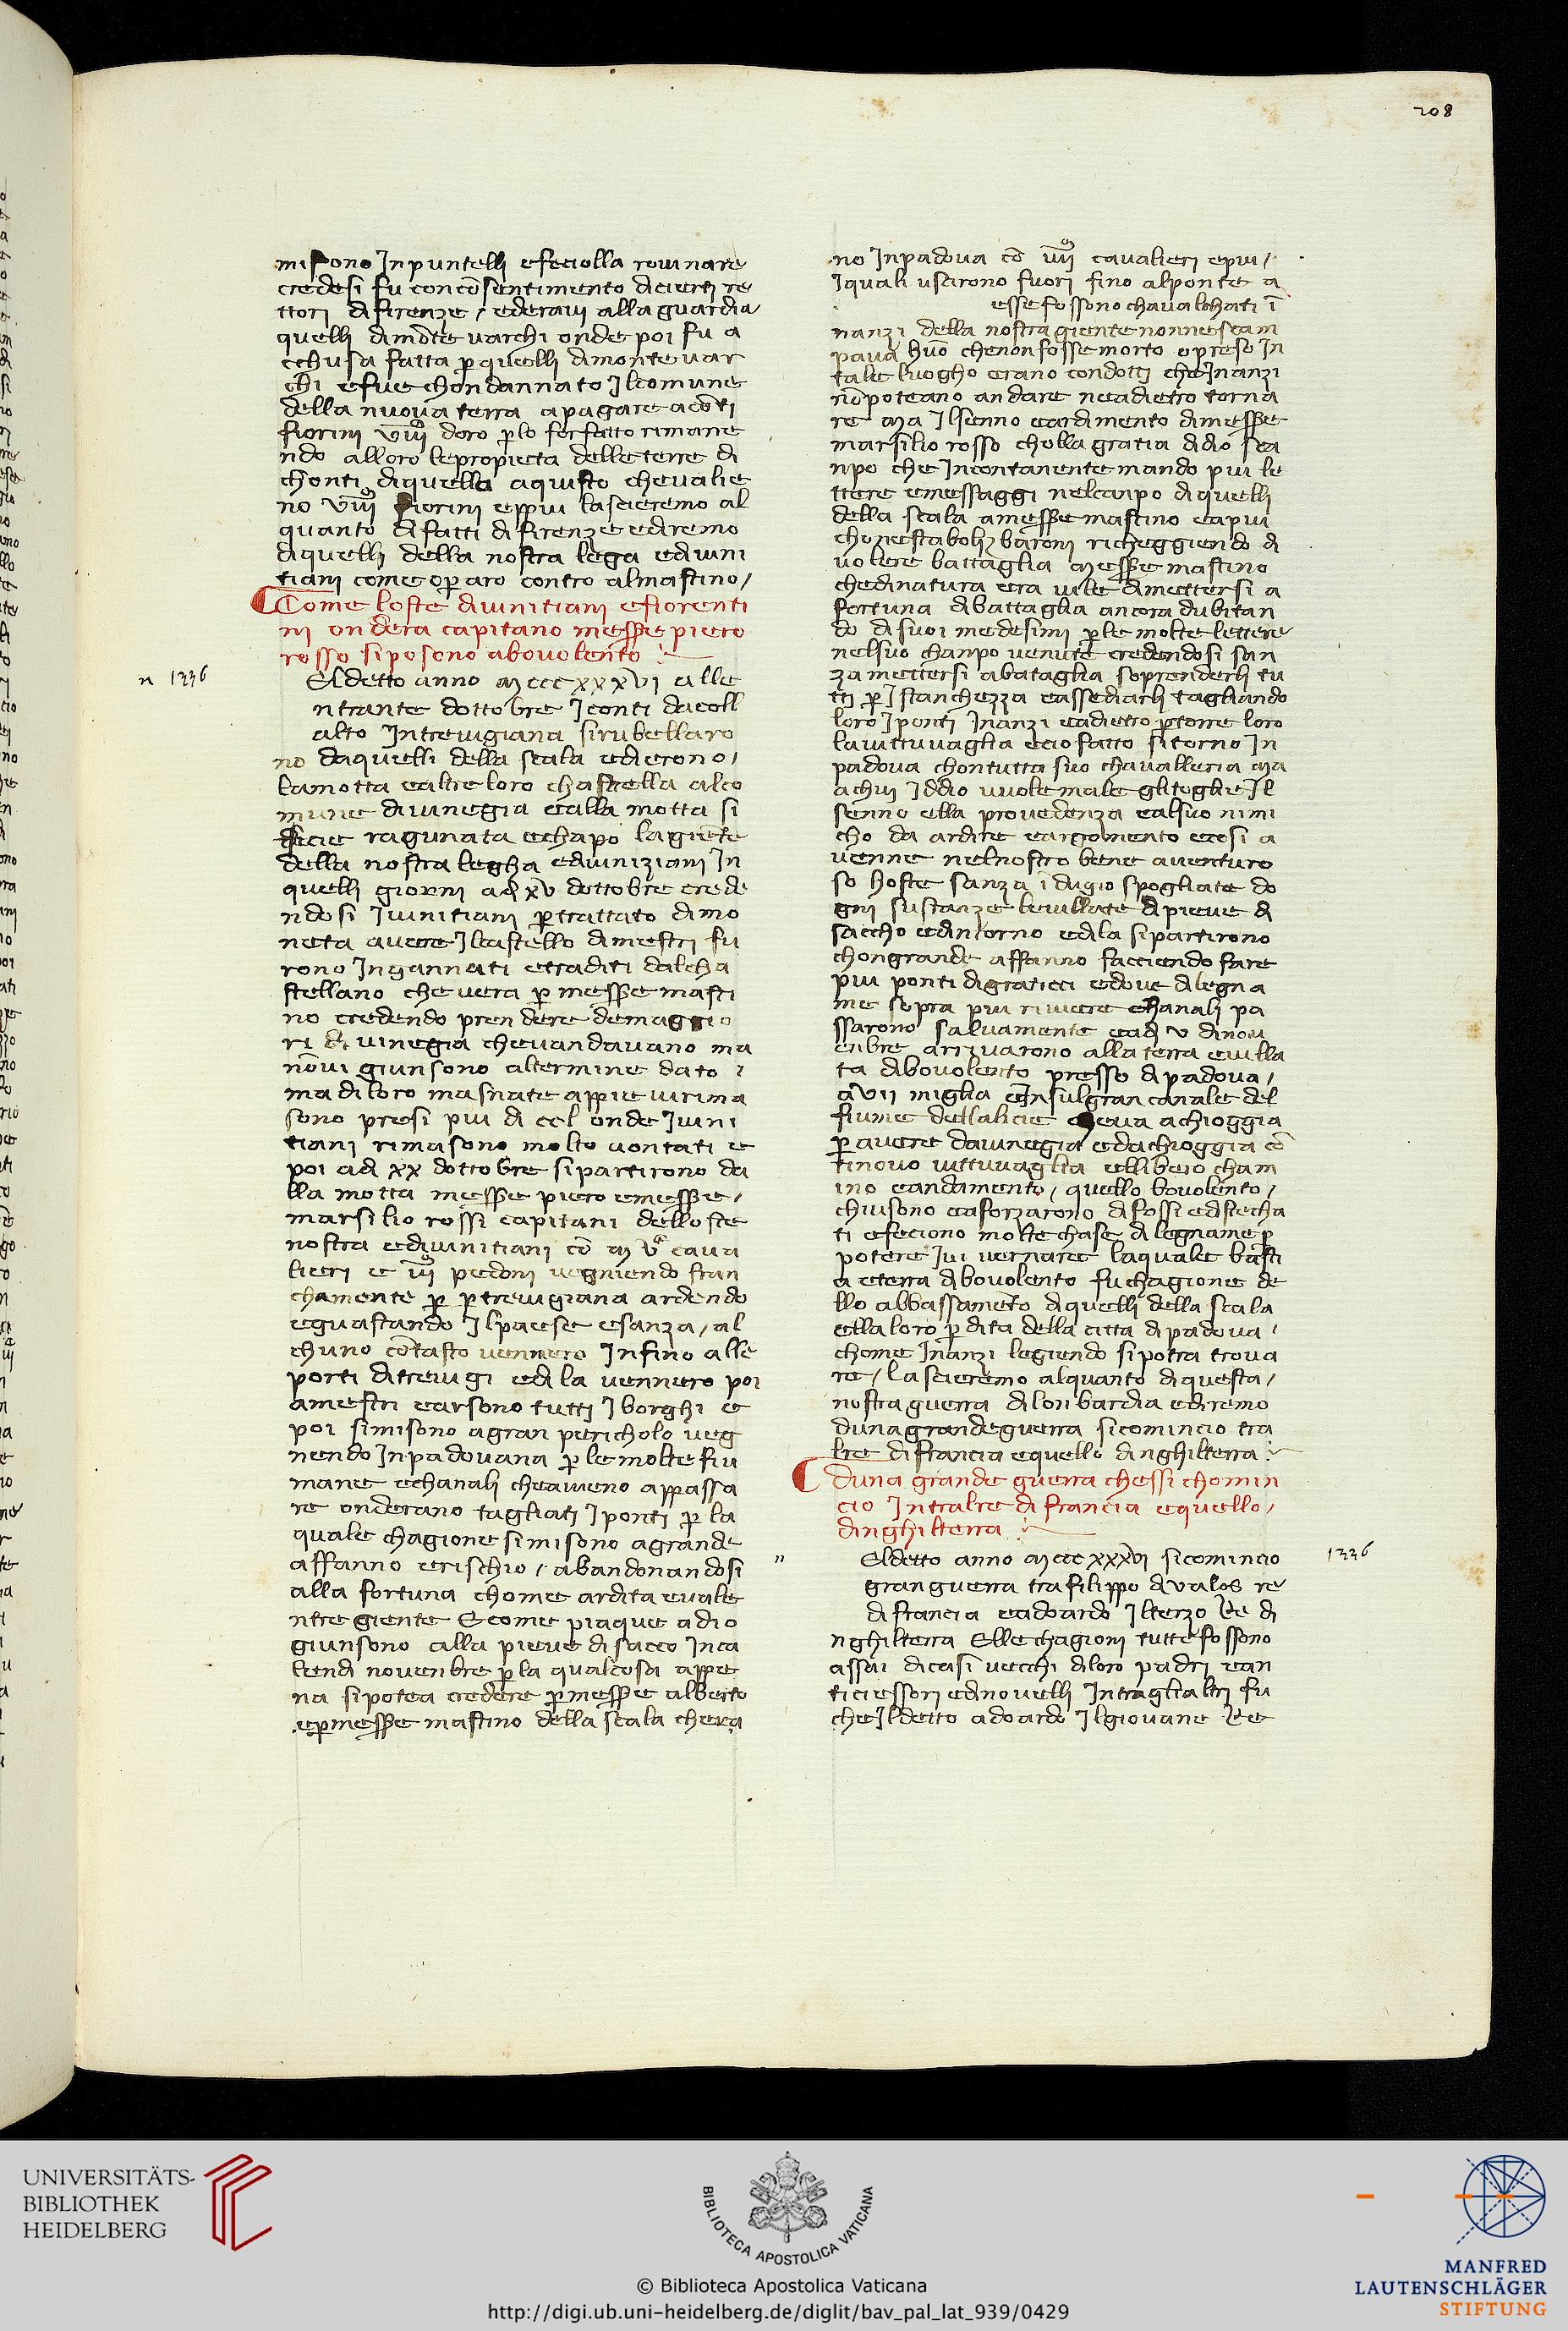 208
misono Jnpuntelli efeciolla rouinare
credesi fu concōsentimento dicierti re
ttori di firenze / ederaui allaguardia
quelli dimōte uarchi onde poi fu a
cchusa fatta ꝑ quelli dimonteuar
chi efue chondannato Jlcomune
della nuoua terra apagare acōti
fiorini viijᵒ doro ꝑlo forfatto rimane
ndo alloro lepropieta delleterre di
chonti diquella aquisto chevalie
no viijᵒ fiorini eppiu lascieremo al
quanto difatti di firenze ediremo
diquelli della nostra lega ediuini
tiani come oꝑaro contro almastino /
Come loste diuinitiani efiorenti
ni ondera capitano messe piero
rosso siposono abouolento
n 1336
Eldetto anno mcccxxxvi alle
ntrante dottobre Jconti dacoll
alto Jntreuigiana sirubellaro
no daquelli della scala edierono /
lamotta ealtreloro chastella alco
mune diuinegia ealla motta si
fecie ragunata echapo lagiēte
della nostra legha ediuiniziani Jn
quelli giorni adi xv dottobre crede
ndosi Juinitiani ꝑtrattato dimo
neta auere Jlcastello dimestri fu
rono Jngannati etraditi dalcha
stellano che vera ꝑ messe masti
no credendo prendere demaggio
ri di vinegia chevandavano ma
nōui giunsono altermine dato /
ma diloro masnate appie uirima
sono presi piu di ccl onde Juini
tiani rimasono molto uontati e
poi adi xx dottobre sipartirono da
lla motta messe piero emesse /
marsilio rossi capitani delloste
nostra ediuinitiani cō m vᶜ caua
lieri e iiijᵒ pedoni uegniendo fran
chamente ꝑ ꝑtreuigiana ardendo
eguastando Jlpaese esanza / al
chuno cōtasto uennero Jnfino alle
porti ditreuigi edila uennero poi
amestri earsono tutti Jborghi e
poi simisono agran pericholo ueg
nendo Jnpadouana ꝑ lemolte fiu
mane echanali cheaueno appassa
re onderano tagliati Jponti ꝑ la
quale chagione simisono agrande
affanno erischio / abandonandosi
alla fortuna chome ardita euale
ntre giente Ecome piaque adio
giunsono alla pieue di sacco Jnca
lendi nouenbre ꝑla qualcosa appe
na sipotea credere ꝑmesse alberto
eꝑmesse mastino della scala chera
no Jnpadova cō viijᵒ cavalieri epiu /
Jquali uscirono fuori fino alponte a
essefossono chavalchati ī
nanzi della nostra giente nonnescam
paua huō chenonfossemorto opreso Jn
tale luogho erano condotti che Jnanzi
nōpoteano andare neadietro torna
re ma Jlsenno eardimento dimesse
marsilio rosso cholla gratia didio sca
npo che Jncontanente mando piu le
ttere emessaggi nelcanpo diquelli
della scala amesse mastino eapiu
chonestaboli ebaroni richeggiendo di
uolere battaglia messe mastino
chedinatura era uile dimettersi a
fortuna dibattaglia ancora dubitan
do di suoi medesimi ꝑle moltelettere
nelsuo chanpo venute credendosi san
zamettersi abataglia soprenderli tu
tti ꝑ Jstanchezza eassediarli tagliando
loro Jponti Jnanzi eadietro ꝑtorre loro
lauittuuaglia ecio fatto sitorno Jn
padova chontutta suo chavalleria ma
achui Jddio uuolemale glitoglie Jl
senno ella prouedenza ealsuo nimi
cho da ardire eargomento ecosi a
uenne nelnostro bene auenturo
so hoste sanza īdugio spogliate do
gni sustanze leuillate di pieue di
saccho edintorno edila sipartirono
chongrande affanno facciendo fare
piu ponti digraticci edoue dilegna
me sopra piu riuiere echanali pa
ssarono salvamente eadi v dinou
enbre arriuarono alla terra euilla
ta dibouolento presso di padoua /
avii miglia eJnsulgrancanale del
fiume dellalicie cheua achioggia
ꝑ auere dauinegia edachioggia cō
tinouo uittuuaglia ellibero cham
ino eandamento / quello bouolento /
chiusono eaforzarono di fossi edistecha
ti efeciono moltechase di legname ꝑ
potere Jui uernare laquale basti
a eterra dibouolento fuchagione de
llo abbassamēto diquelli della scala
ellaloro ꝑdita della citta di padoua /
chome Jnanzi legiendo sipotra troua
re / lascieremo alquanto di questa /
nostra guerra dilonbardia ediremo
dunagrandeguerra sicomincio tra
lre di francia equello dinghilterra
duna grande guerra chessi chomin
cio Jntralre di francia equello /
dinghilterra
" 1336
Eldetto anno mcccxxxvi sicomincio
granguerra trafilippo di valos re
di francia eadoardo Jlterzo Re di
nghilterra Ellechagioni tuttefossono
assai dicasi vecchi diloro padri ean
ticiessori edinovelli Jntraglialtri fu
che Jldetto adoardo Jlgiouane Re
UNIVERSITÄTS-
BIBLIOTHEK
HEIDELBERG
BIBLIOTECA APOSTOLICA VATICANA
© Biblioteca Apostolica Vaticana
http://digi.ub.uni-heidelberg.de/diglit/bav_pal_lat_939/0429
MANFRED
LAUTENSCHLÄGER
STIFTUNG